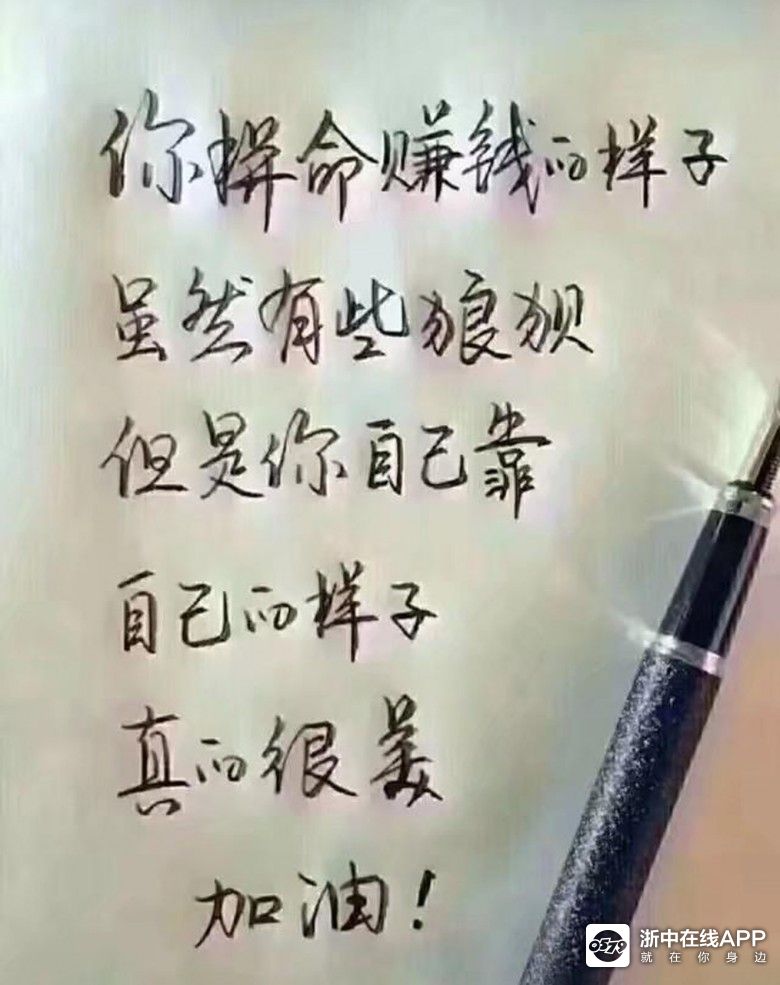 你拼命赚钱的样子
虽然有些狼狈
但是你自己靠
自己的样子
真的很美
加油!
0579
浙中在线APP
就在你身边